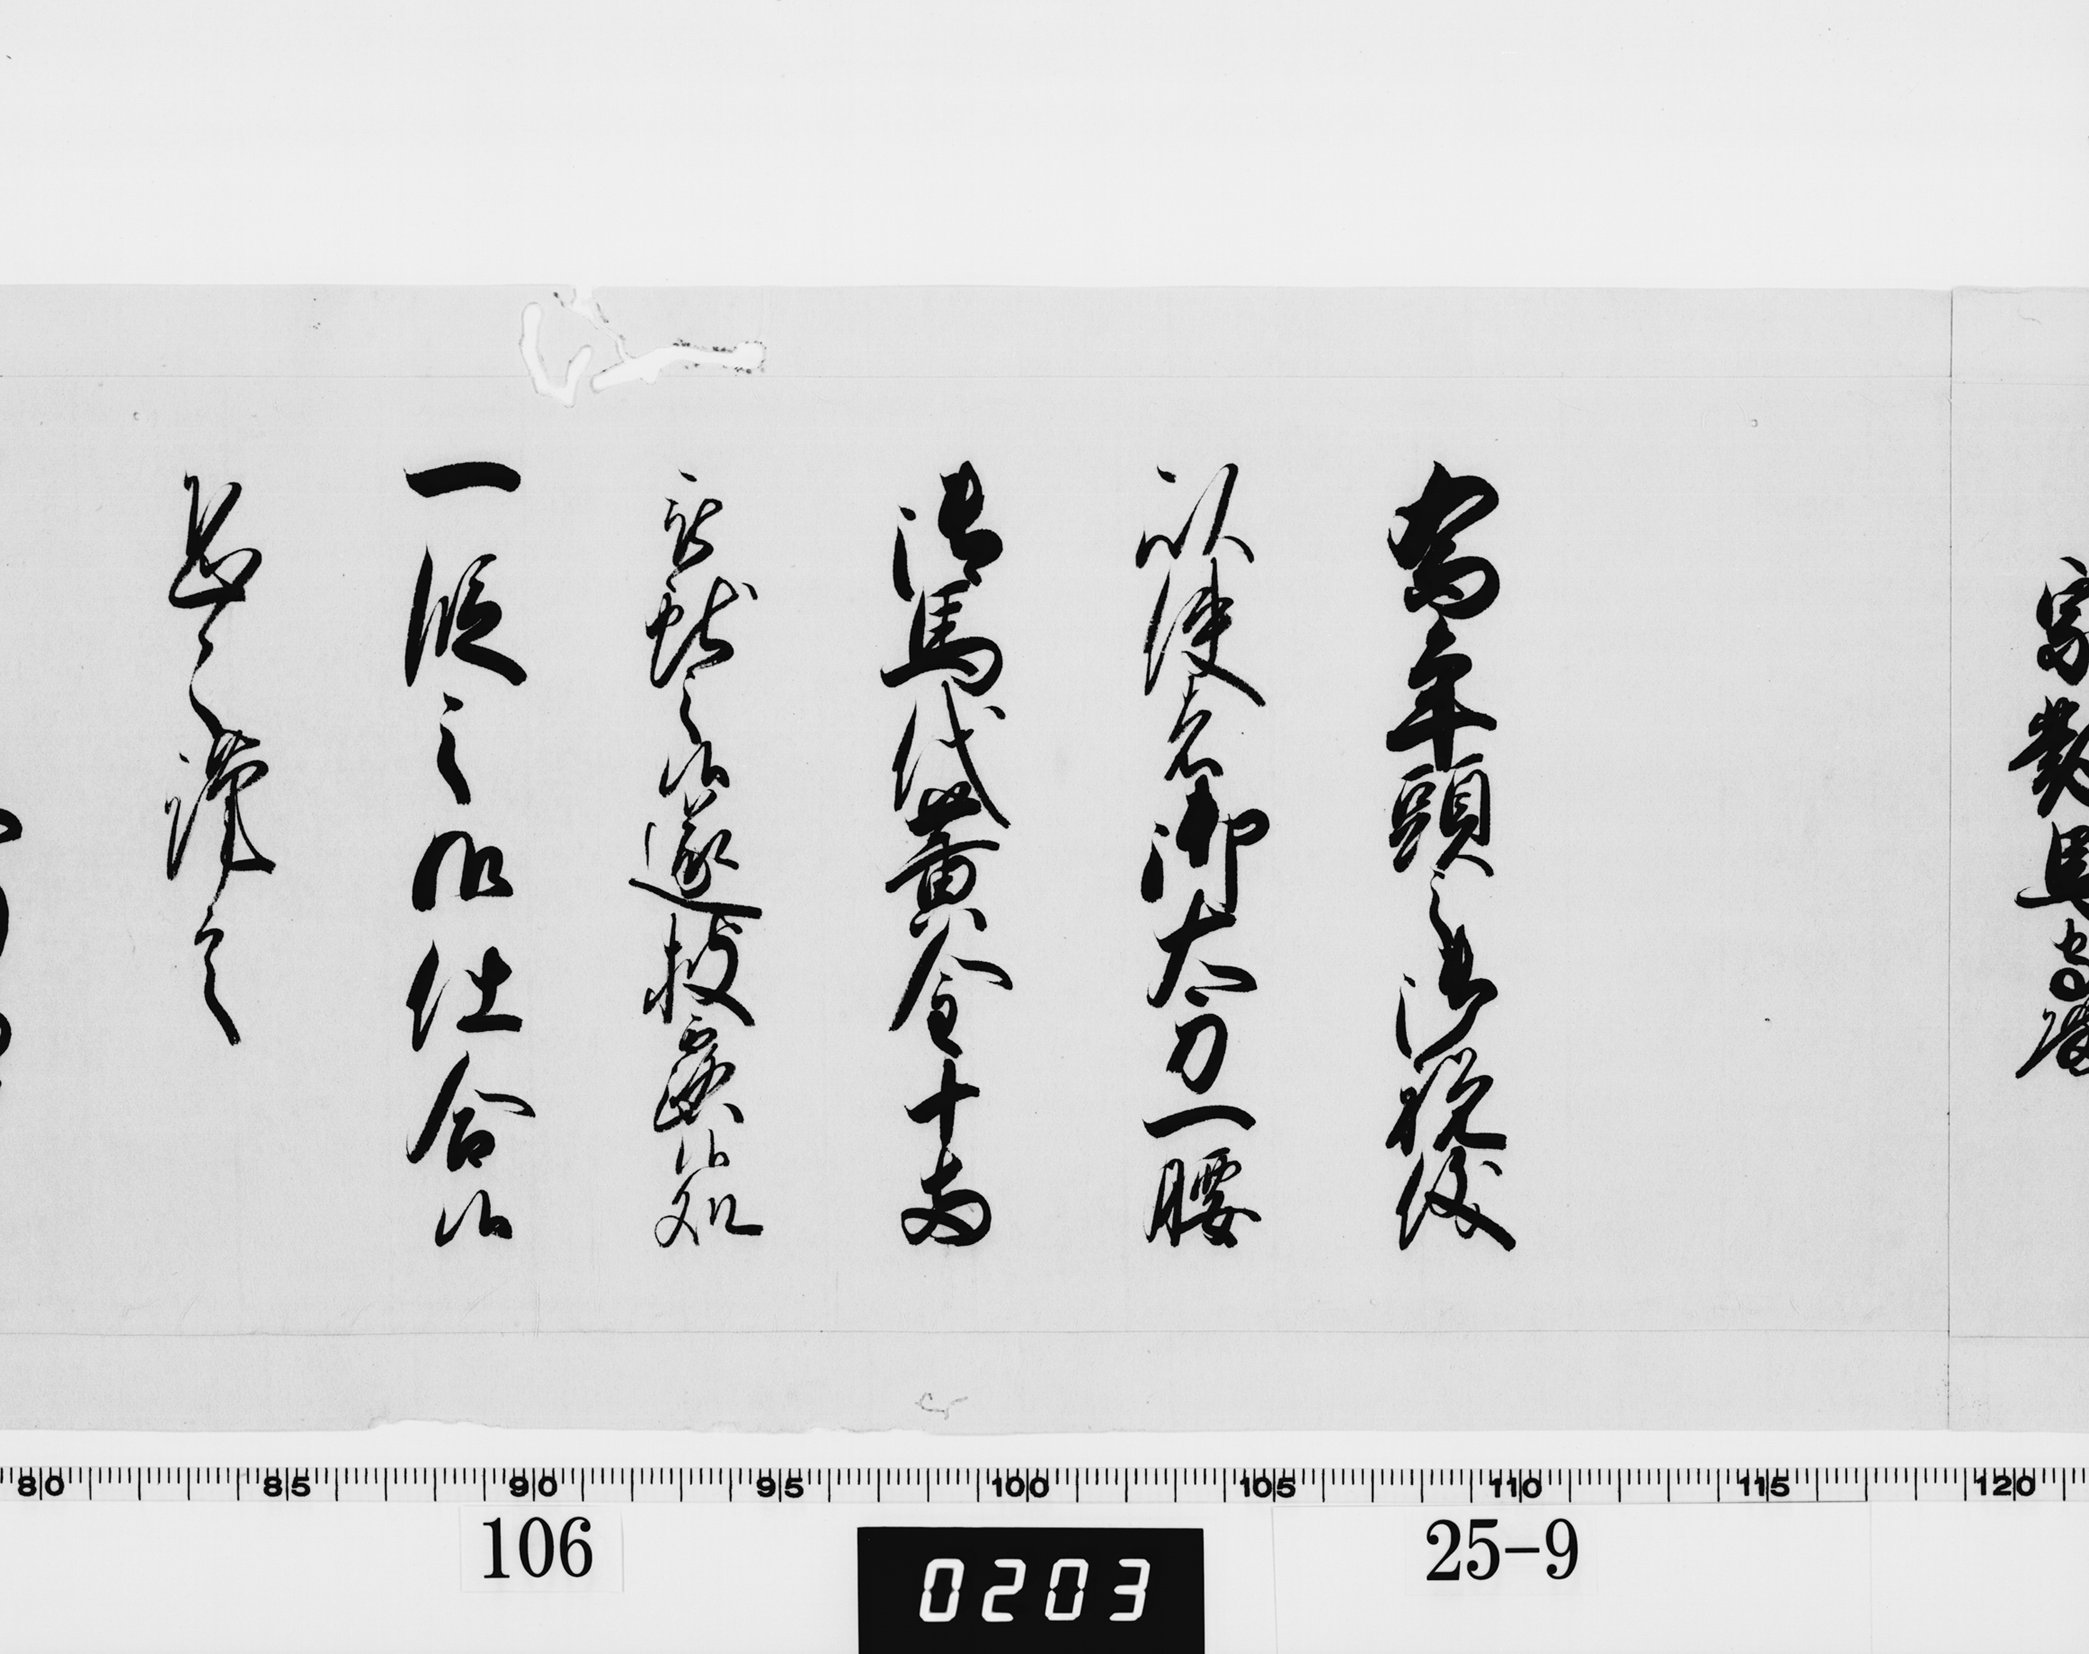 為年頭之御祝儀
以使者御太刀一腰
御馬代黄金十両
献之候遂披露候処
一段之御仕合候
恐々謹言
80 85 90 95 100 105 110 115 120
106
0203
25-9